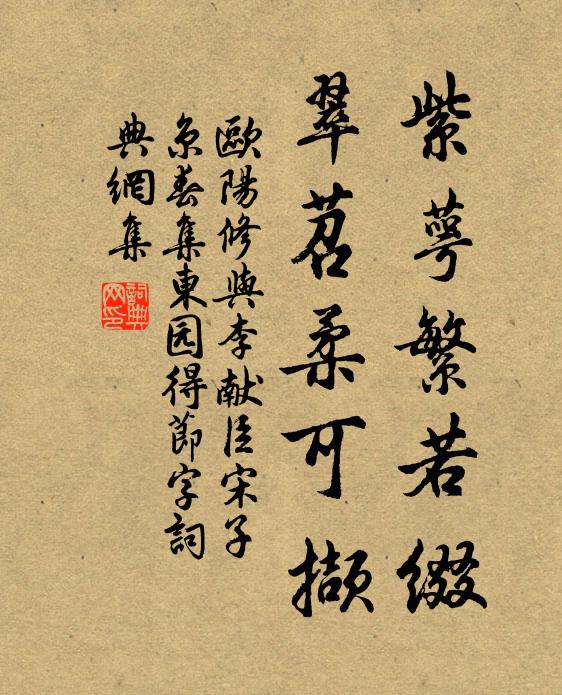 紫萼繁若綴
翠苕柔可擷
歐陽修與李献臣宋子
京春集東园得節字詞
典網集
詞典
网印